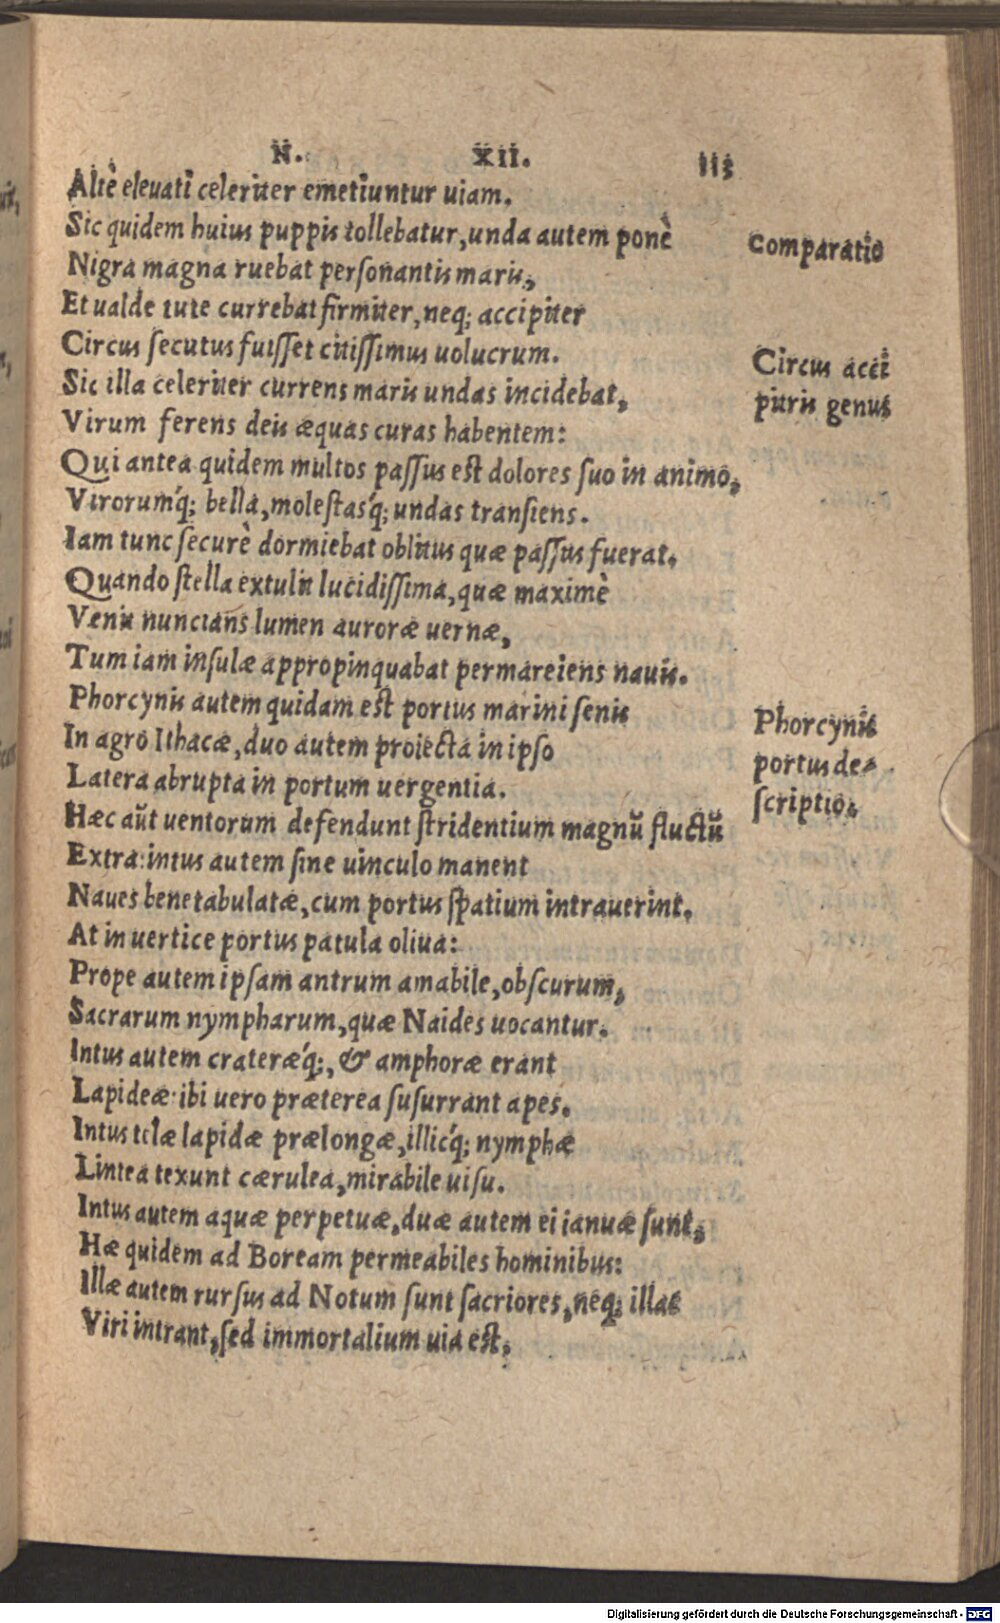 N. XII. 113
Altè eleuati celeriter emetiuntur uiam.
Sic quidem huius puppis tollebatur, unda autem ponè
Comparatio
Nigra magna ruebat personantis maris,
Et ualde tute currebat firmiter, neq; accipiter
Circus secutus fuisset citissimus uolucrum.
Circus acci
Sic illa celeriter currens maris undas incidebat,
pitris genus
Virum ferens deis æquas curas habentem:
Qui antea quidem multos passus est dolores suo in animo,
Virorumq́; bella, molestasq́; undas transiens.
Iam tunc securè dormiebat oblitus quæ passus fuerat.
Quando stella extulit lucidissima, quæ maximè
Venit nuncians lumen auroræ uernæ,
Tum iam insulæ appropinquabat permareiens nauis.
Phorcynis autem quidam est portus marini senis
Phorcynis
In agro Ithacæ, duo autem proiecta in ipso
portus de-
Latera abrupta in portum uergentia.
scriptio.
Hæc aūt uentorum defendunt stridentium magnū fluctū
Extra: intus autem sine uinculo manent
Naues benetabulatæ, cum portus spatium intrauerint.
At in uertice portus patula oliua:
Prope autem ipsam antrum amabile, obscurum,
Sacrarum nympharum, quæ Naides uocantur.
Intus autem crateræq́;, & amphoræ erant
Lapideæ: ibi uero præterea susurrant apes.
Intus telæ lapidæ prælongæ, illicq́; nymphæ
Lintea texunt cærulea, mirabile uisu.
Intus autem aquæ perpetuæ, duæ autem ei ianuæ sunt,
Hæ quidem ad Boream permeabiles hominibus:
Illæ autem rursus ad Notum sunt sacriores, neq; illac
Viri intrant, sed immortalium uia est,
Digitalisierung gefördert durch die Deutsche Forschungsgemeinschaft - DFG